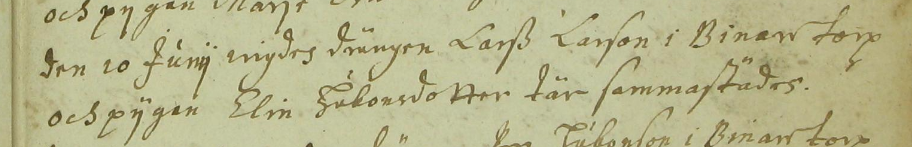 och pijgan Marit
den 10 Junij wigdes drängen Larß Larson i Binnartorp
och pijgan Elin Håkonsdotter där sammastädes.
Håkonson i Binnartorp